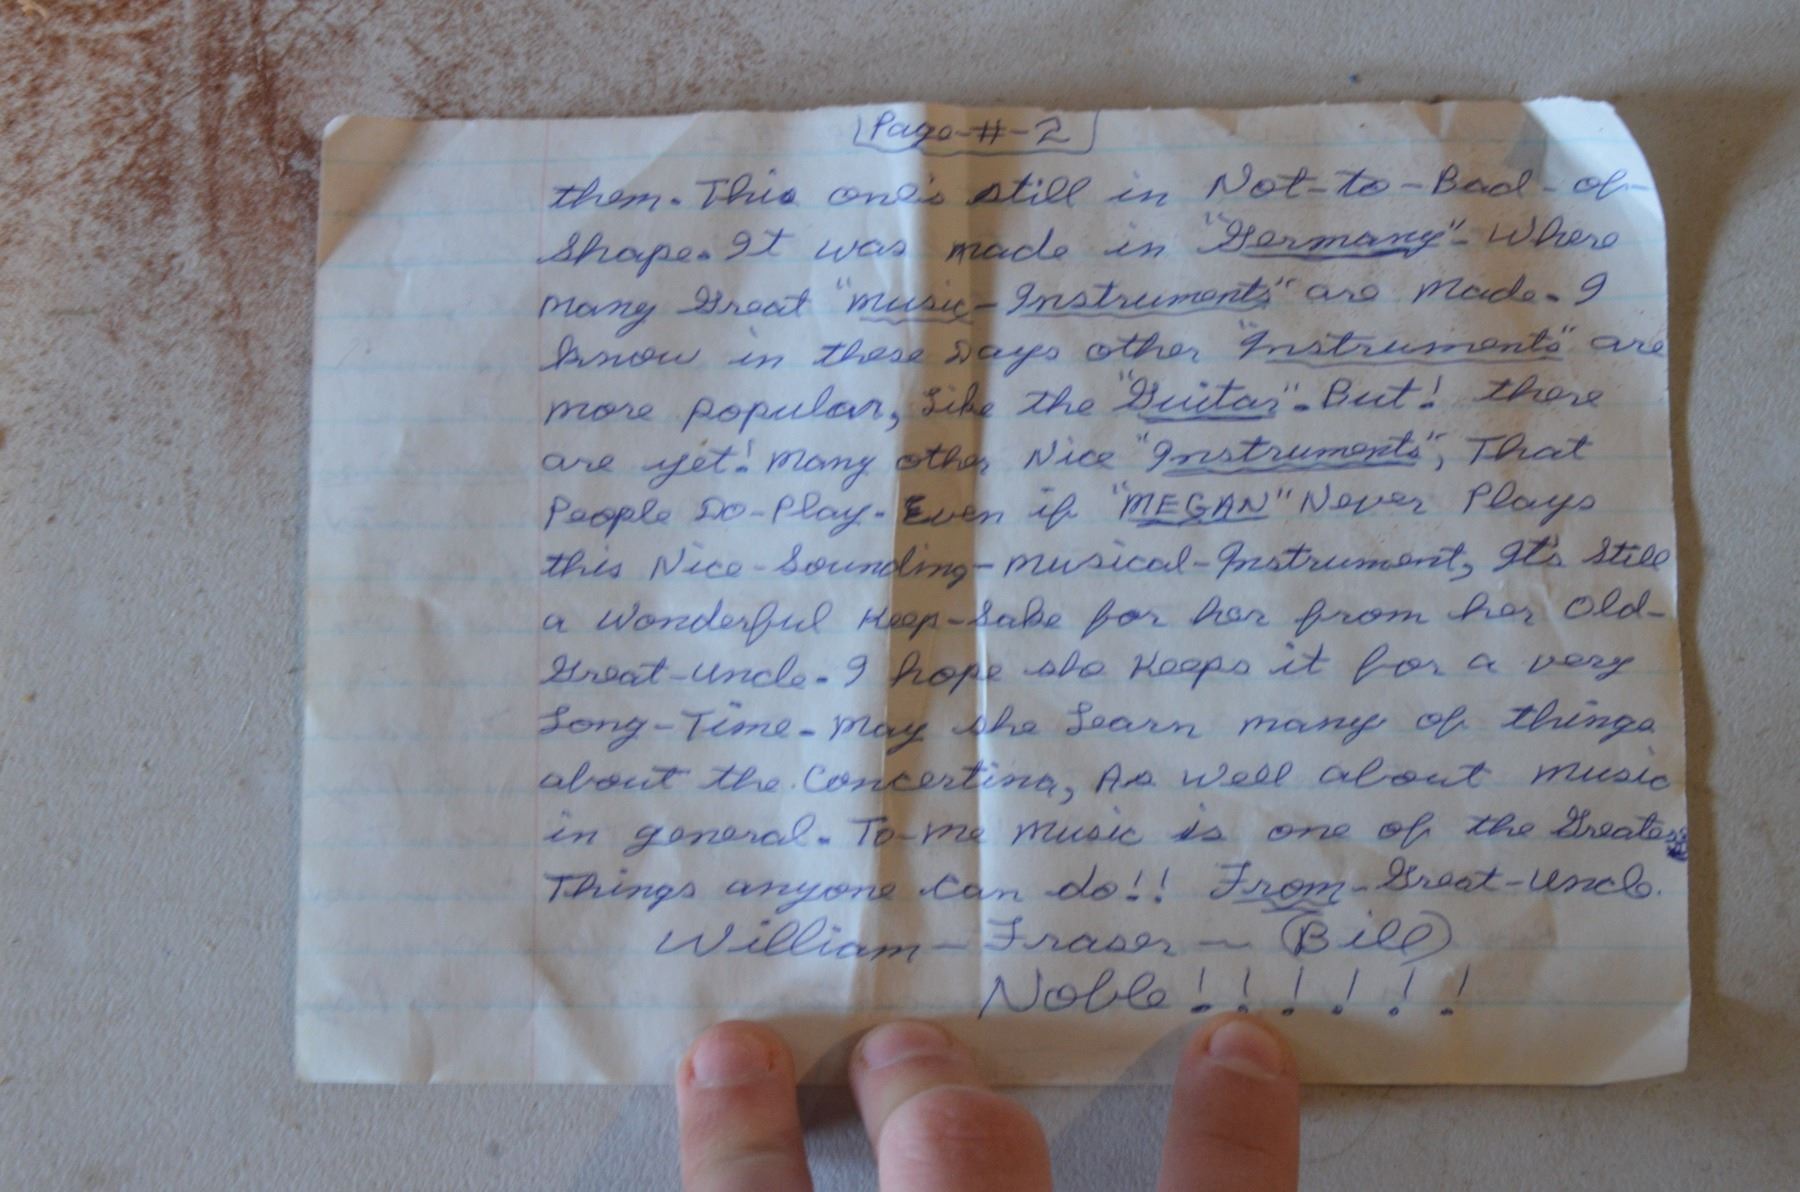 Page-#-2
them. This one's still in Not-to-Bad-of-
Shape. It was made in "Germany"- Where
many Great "music-Instruments" are made. I
know in these Days other "Instruments" are
more popular, Like the "Guitar". But! there
are yet! many other Nice "Instruments", That
People Do-Play. Even if "MEGAN" Never Plays
this Nice-Sounding-musical-Instrument, It's Still
a wonderful Keep-Sake for her from her Old-
Great-Uncle. I hope she Keeps it for a very
Long-Time. may she Learn many of things
about the Concertina, As Well about music
in general. To-me music is one of the Greates
Things anyone Can do!! From-Great-Uncle.
William-Fraser-(Bill)
Noble!!!!!!